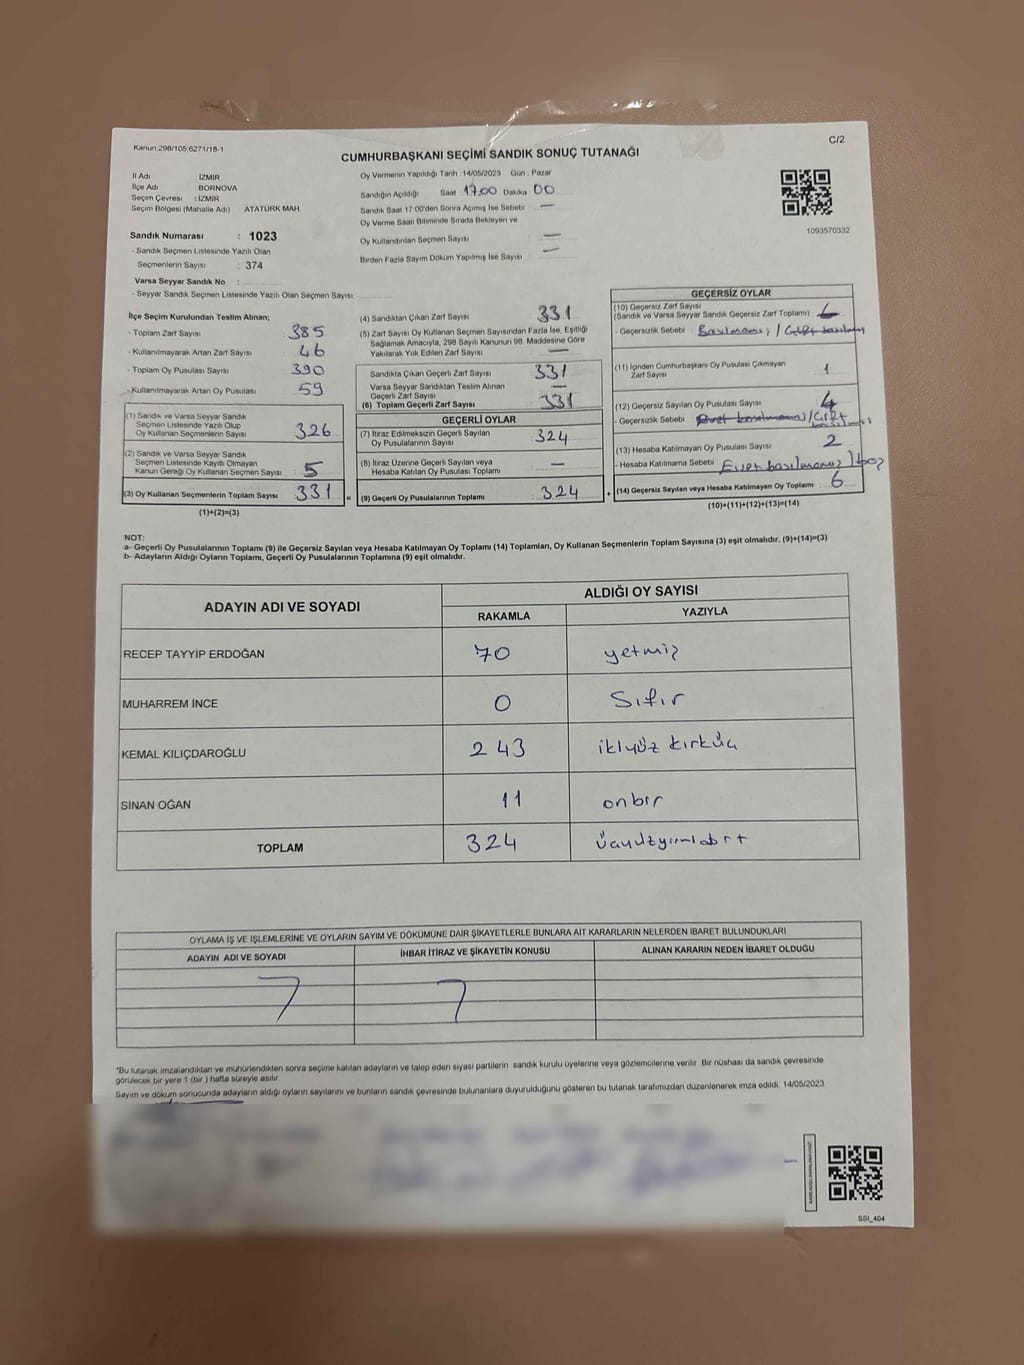 Kanun:298/105,6271/18-1
C/2
CUMHURBAŞKANI SEÇİMİ SANDIK SONUÇ TUTANAĞI
İl Adı İZMİR
İlçe Adı BORNOVA
Seçim Çevresi : İZMİR
Seçim Bölgesi (Mahalle Adı) ATATÜRK MAH.
Sandık Numarası : 1023
- Sandık Seçmen Listesinde Yazılı Olan
Seçmenlerin Sayısı : 374
Varsa Seyyar Sandık No :
- Seyyar Sandık Seçmen Listesinde Yazılı Olan Seçmen Sayısı
Oy Vermenin Yapıldığı Tarih : 14/05/2023 Gün : Pazar
Sandığın Açıldığı Saat 17.00 Dakika 00
Sandık Saat 17.00'den Sonra Açılmış İse Sebebi —
Oy Verme Saati Bitiminde Sırada Bekleyen ve
Oy Kullandırılan Seçmen Sayısı —
Birden Fazla Sayım Döküm Yapılmış İse Sayısı —
1093570332
İlçe Seçim Kurulundan Teslim Alınan;
- Toplam Zarf Sayısı 385
- Kullanılmayarak Artan Zarf Sayısı 46
- Toplam Oy Pusulası Sayısı 390
- Kullanılmayarak Artan Oy Pusulası 59
(1) Sandık ve Varsa Seyyar Sandık
Seçmen Listesinde Yazılı Olup
Oy Kullanan Seçmenlerin Sayısı 326
(2) Sandık ve Varsa Seyyar Sandık
Seçmen Listesinde Kayıtlı Olmayan
Kanun Gereği Oy Kullanan Seçmen Sayısı : 5
(3) Oy Kullanan Seçmenlerin Toplam Sayısı 331
(1)+(2)=(3)
(4) Sandıktan Çıkan Zarf Sayısı 331
(5) Zarf Sayısı Oy Kullanan Seçmen Sayısından Fazla İse, Eşitliği
Sağlamak Amacıyla, 298 Sayılı Kanunun 98. Maddesine Göre
Yakılarak Yok Edilen Zarf Sayısı —
Sandıkta Çıkan Geçerli Zarf Sayısı 331
Varsa Seyyar Sandıktan Teslim Alınan
Geçerli Zarf Sayısı —
(6) Toplam Geçerli Zarf Sayısı 331
GEÇERLİ OYLAR
(7) İtiraz Edilmeksizin Geçerli Sayılan
Oy Pusulalarının Sayısı 324
(8) İtiraz Üzerine Geçerli Sayılan veya
Hesaba Katılan Oy Pusulası Toplamı —
= (9) Geçerli Oy Pusulalarının Toplamı 324 +
GEÇERSİZ OYLAR
(10) Geçersiz Zarf Sayısı
(Sandık ve Varsa Seyyar Sandık Geçersiz Zarf Toplamı)
- Geçersizlik Sebebi
(11) İçinden Cumhurbaşkanı Oy Pusulası Çıkmayan
Zarf Sayısı 1
(12) Geçersiz Sayılan Oy Pusulası Sayısı 4
- Geçersizlik Sebebi
(13) Hesaba Katılmayan Oy Pusulası Sayısı 2
- Hesaba Katılmama Sebebi Evet basılmamış /boş
(14) Geçersiz Sayılan veya Hesaba Katılmayan Oy Toplamı : 6
(10)+(11)+(12)+(13)=(14)
NOT:
a- Geçerli Oy Pusulalarının Toplamı (9) ile Geçersiz Sayılan veya Hesaba Katılmayan Oy Toplamı (14) Toplamları, Oy Kullanan Seçmenlerin Toplam Sayısına (3) eşit olmalıdır. (9)+(14)=(3)
b- Adayların Aldığı Oyların Toplamı, Geçerli Oy Pusulalarının Toplamına (9) eşit olmalıdır.
ADAYIN ADI VE SOYADI
ALDIĞI OY SAYISI
RAKAMLA YAZIYLA
RECEP TAYYİP ERDOĞAN 70 yetmiş
MUHARREM İNCE 0 Sıfır
KEMAL KILIÇDAROĞLU 243 ikiyüz kırküç
SİNAN OĞAN 11 onbir
TOPLAM 324
OYLAMA İŞ VE İŞLEMLERİNE VE OYLARIN SAYIM VE DÖKÜMÜNE DAİR ŞİKAYETLERLE BUNLARA AİT KARARLARIN NELERDEN İBARET BULUNDUKLARI
ADAYIN ADI VE SOYADI İHBAR İTİRAZ VE ŞİKAYETİN KONUSU ALINAN KARARIN NEDEN İBARET OLDUĞU
*Bu tutanak imzalandıktan ve mühürlendikten sonra seçime katılan adayların ve talep eden siyasi partilerin sandık kurulu üyelerine veya gözlemcilerine verilir. Bir nüshası da sandık çevresinde
görülecek bir yere 1 (bir ) hafta süreyle asılır.
Sayım ve döküm sonucunda adayların aldığı oyların sayılarını ve bunların sandık çevresinde bulunanlara duyurulduğunu gösteren bu tutanak tarafımızdan düzenlenerek imza edildi. 14/05/2023
SSI_404